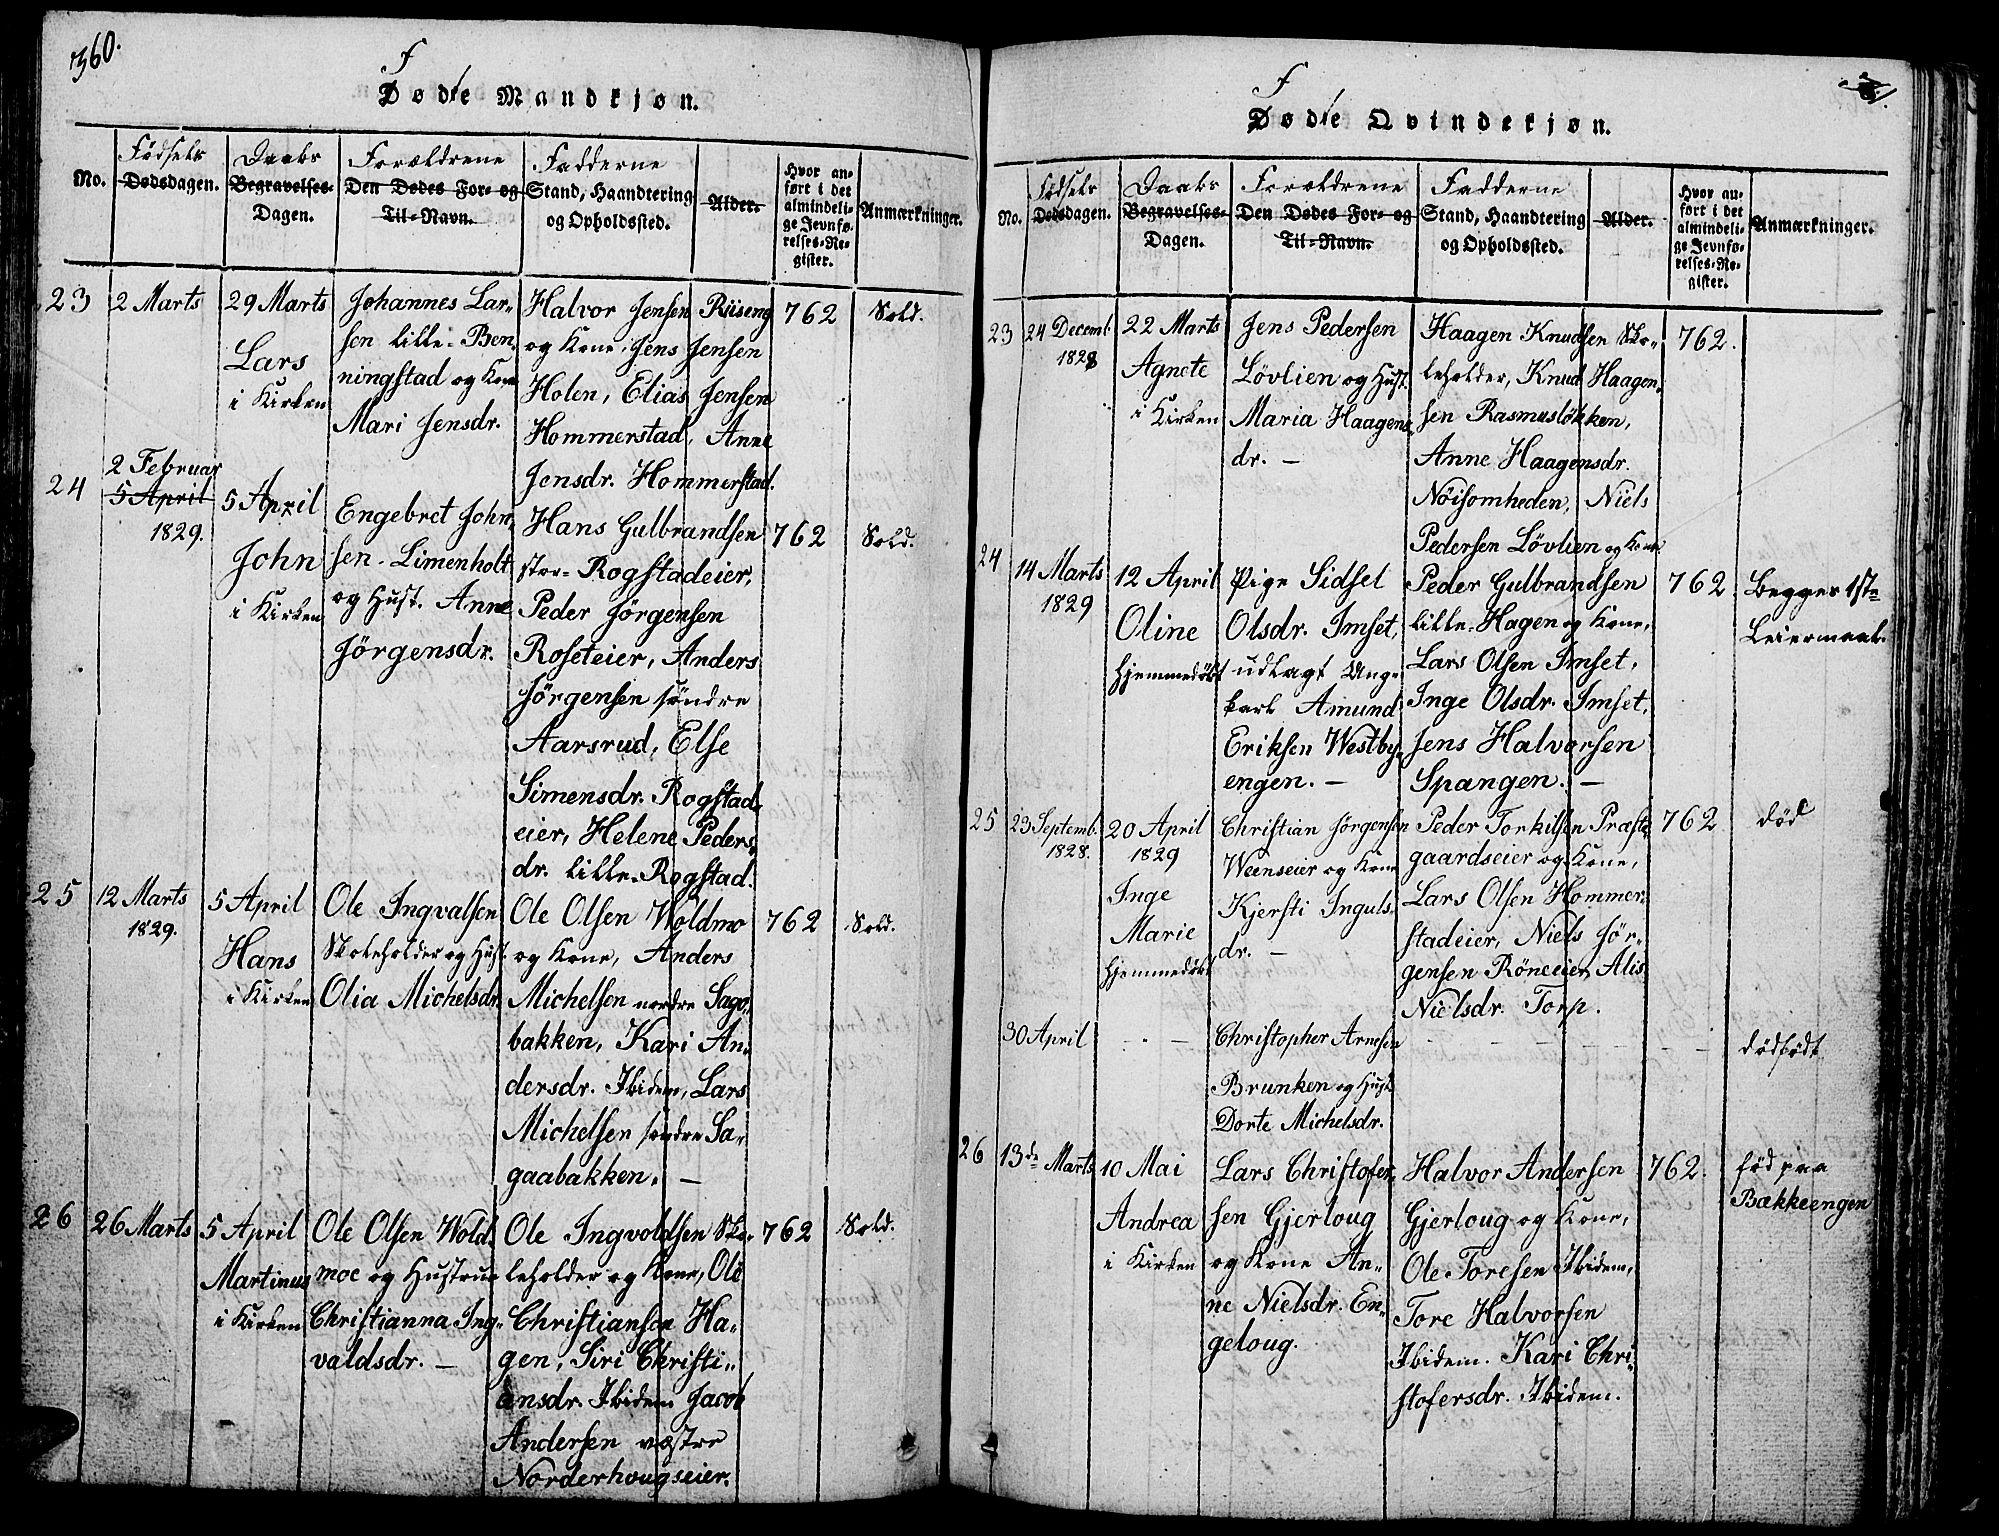 360.
F
Døde Mandkjøn.
No.
Fødsels
Dødsdagen.
Daabs
Begravelses-
Dagen.
Forældrene
Den Dødes For- og
Til-Navn.
Fadderne
Stand, Haandtering
og Opholdssted.
Alder.
Hvor an-
ført i det
almindeli-
ge Jevnfø-
relses-Re-
gister.
Anmærkninger.
23
2 Marts
29 Marts
Lars
i Kirken
Johannes Lar-
sen lille-Ben-
ningstad og Kone
Mari Jensdr.
Halvor Jensen Riiseng
og Kone, Jens Jensen
Holen, Elias Jensen
Hommerstad, Anne
Jensdr. Hommerstad.
762
Sold.
24
2 Februar
5 April
1829.
5 April
John
i Kirken
Engebret John-
sen Limenholt
og Hust. Anne
Jörgensdr.
Hans Gulbrandsen
stor-Rogstadeier,
Peder Jörgensen
Roseteier, Anders
Jörgensen söndre
Aarsrud, Else
Simensdr. Rogstad-
eier, Helene Peders-
dr. lille-Rogstad.
762
Sold.
25
12 Marts
1829.
5 April
Hans
i Kirken
Ole Ingvalsen
Skoleholder og Hust.
Olia Michelsdr.
Ole Olsen Woldmo
og Kone, Anders
Michelsen nordre Saga-
bakken, Kari An-
dersdr. Ibidem, Lars
Michelsen söndre Sa-
gaabakken. —
762
Sold.
26
26 Marts
5 April
Martinus
i Kirken
Ole Olsen Wold-
moe og Hustrue
Christianna Ing-
valdsdr. —
Ole Ingvoldsen Sko-
leholder og Kone, Ole
Christiansen Ha-
gen, Siri Christi-
ansdr. Ibidem Jacob
Andersen væstre
Norderhougseier.
762
Sold.
361.
F
Døde Qvindekjøn.
No.
Fødsels
Dødsdagen.
Daabs
Begravelses-
Dagen.
Forældrene
Den Dødes For- og
Til-Navn.
Fadderne
Stand, Haandtering
og Opholdssted.
Alder.
Hvor an-
ført i det
almindeli-
ge Jevnfø-
relses-Re-
gister.
Anmærkninger.
23
24 Decemb.
1828
22 Marts
Agnete
i Kirken
Jens Pedersen
Lövlien og Hust.
Maria Haagens-
dr. —
Haagen Knudsen Sko-
leholder, Knud Haagen-
sen Rasmuslökken,
Anne Haagensdr.
Nöisomheden, Niels
Pedersen Lövlien og Kone
762.
24
14 Marts
1829
12 April
Oline
hjemmedöbt
Pige Sidsel
Olsdr. Imset,
udlagt Ung-
karl Amund
Eriksen Westby-
engen. —
Peder Gulbrandsen
lille-Hagen og Kone,
Lars Olsen Imset,
Inge Olsdr. Imset,
Jens Halvorsen
Spangen. —
762
Begges 1ste
Leiermaal.
25
23 Septemb.
1828.
20 April
1829
Inge
Marie
hjemmedöbt
Christian Jörgensen
Weenseier og Kone
Kjersti Inguls-
dr. —
Peder Torkilsen Præste-
gaardseier og Kone,
Lars Olsen Hommer-
stadeier, Niels Jör-
gensen Röneeier, Alis
Nielsdr. Torp.
762
död
30 April
Christopher Arnesen
Brunken og Hust.
Dorte Michelsdr.
dödfödt
26
13de Marts
10 Mai
Andrea
i Kirken
Lars Christofer-
sen Gjerloug
og Kone An-
ne Nielsdr. En-
geloug.
Halvor Andersen
Gjerloug og Kone,
Ole Toresen Ibidem,
Tore Halvorsen
Ibidem. Kari Chri-
stofersdr. Ibidem.
762.
född paa
Bækkeengen